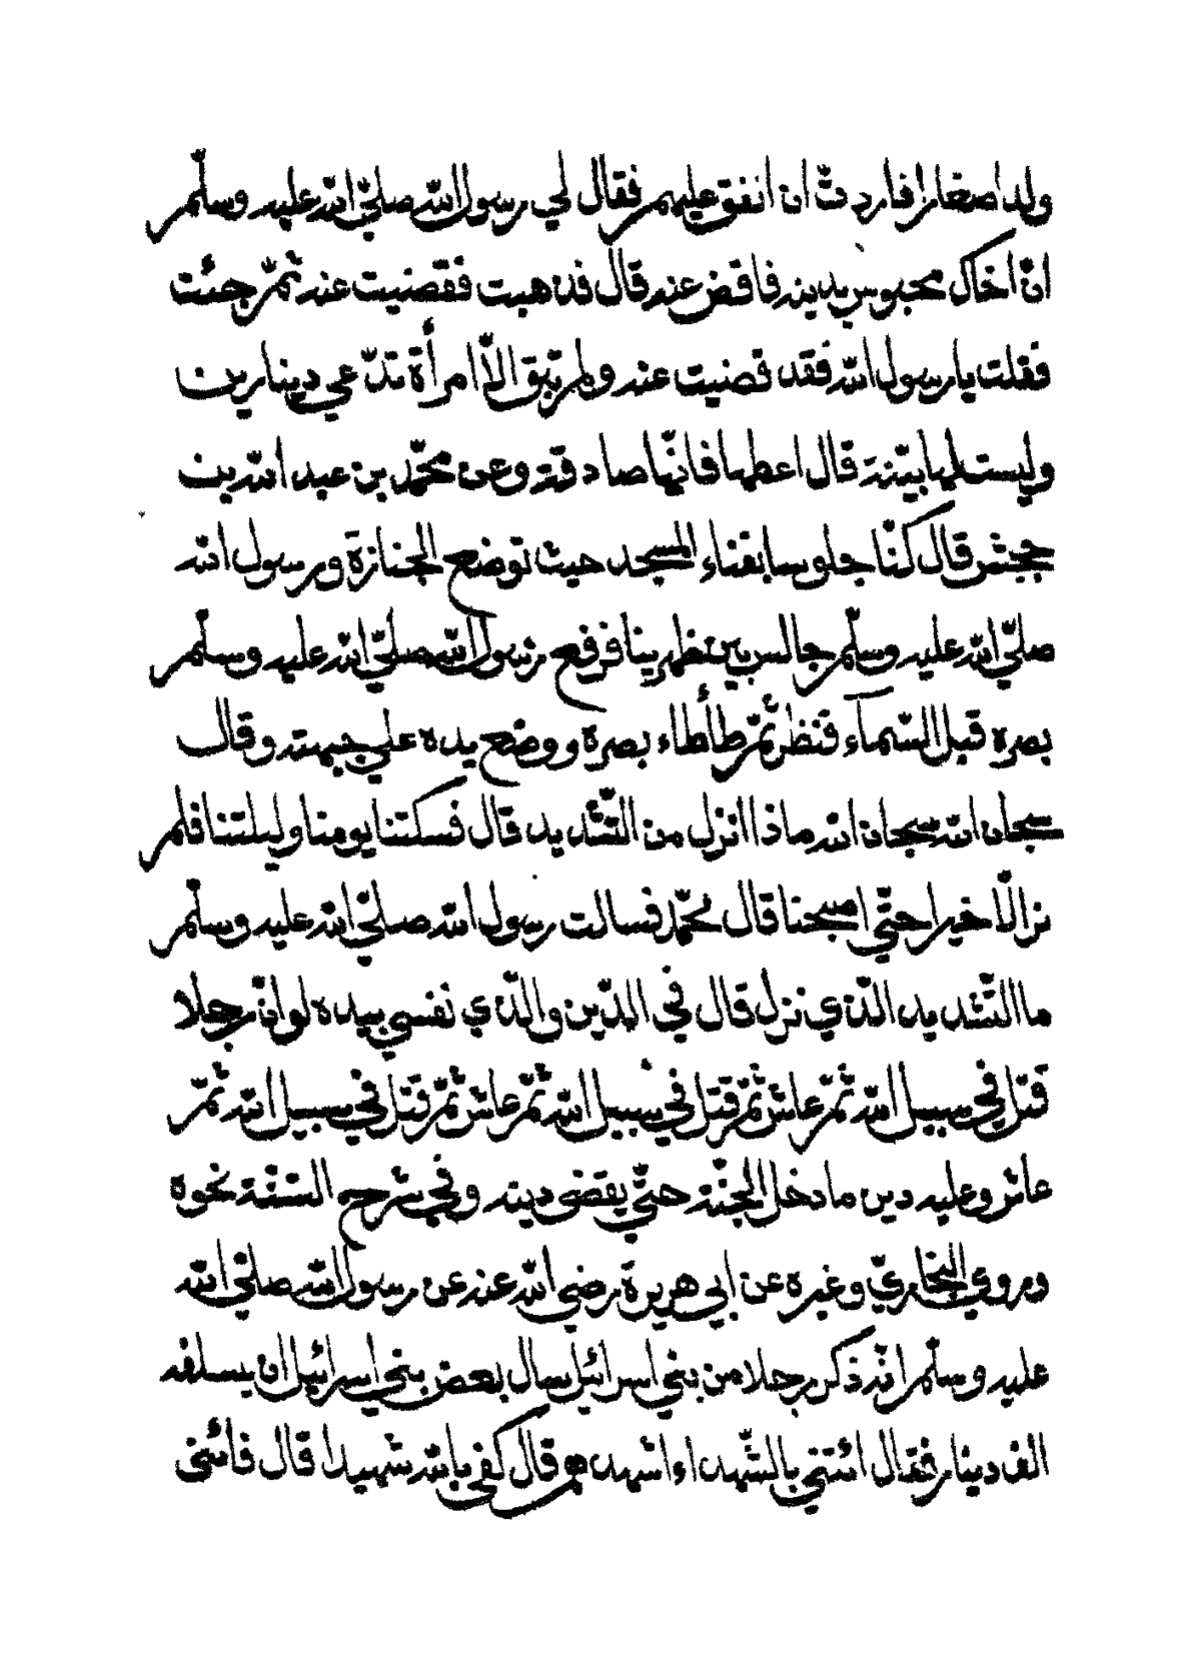 ولدا صغارا فاردتّ ان انفق عليهم فقال لي رسول اللّه صلّي اللّه عليه وسلّم
انّ اخاك محبوس بدينه فاقض عنه قال فذهبت فقضيت عنه ثمّ جئت
فقلت يا رسول اللّه فقد قضيت عنه ولم تبق الّا امرأة تدّعي دينارين
وليست لها بيّنة قال اعطها فانّها صادقة وعن محمّد بن عبد اللّه بن
جحش قال كنّا جلوسا بفناء المسجد حيث توضع الجنازة ورسول اللّه
صلّي اللّه عليه وسلّم جالس بين ظهرينا فرفع رسول اللّه صلّي اللّه عليه وسلّم
بصره قبل السّمآء فنظر ثمّ طأطاء بصره ووضع يده علي جبهته وقال
سبحان اللّه سبحان اللّه ماذا انزل من التّشديد قال فسكتنا يومنا وليلتنا فلم
نر الّا خيرا حتّي اصبحنا قال محمّد فسالت رسول اللّه صلّي اللّه عليه وسلّم
ما التّشديد الّذي نزل قال في الدّين والّذي نفسي بيده لو انّ رجلا
قتل في سبيل اللّه ثمّ عاش ثمّ قتل في سبيل اللّه ثمّ عاش ثمّ قتل في سبيل اللّه ثمّ
عاش وعليه دين ما دخل الجنّة حتّي يقضي دينه وفي شرح السّنّة نحوه
وروي البخاريّ وغيره عن ابي هريرة رضي اللّه عنه عن رسول اللّه صلّي اللّه
عليه وسلّم انّه ذكر رجلا من بني اسرائيل سال بعض بني اسرائيل ان يسلفه
الف دينار فقال ائتني بالشّهداء اشهدهم قال كفي باللّه شهيدا قال فائتني